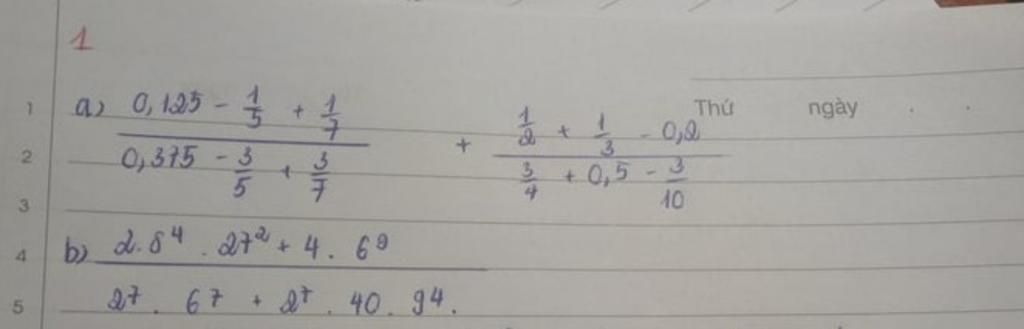 1
Thứ ngày
1 a) (0,125 - 1/5 + 1/7)/(0,375 - 3/5 + 3/7) + (1/2 + 1/3 - 0,2)/(3/4 + 0,5 - 3/10)
2
3
4 b) 2.8^4 . 27^2 + 4 . 6^9
5 2^7 . 6^7 + 2^7 . 40 . 9^4 .